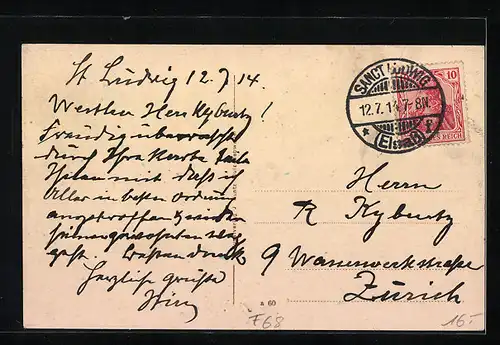 St Ludwig 12.7.14.
Werthen Herr Kyburtz!
Freudig überrascht
durch Ihre Karte teile
Ihnen mit daß ich
Alles in bester Ordnung
angetroffen
Besten Dank
Herzliche Grüße
SANCT LUDWIG
12.7.14 7-8N.
* (Elsaß) f
10
REICH
Herrn
R Kyburtz
9 Wasserwerkstrasse
Zürich
A 60
F68
16.-